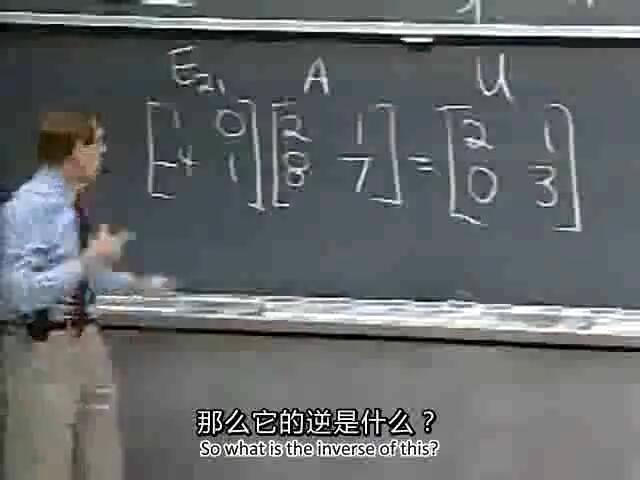 E₂₁ A U
[1 0] [2 1] = [2 1]
[-4 1] [8 7] [0 3]
那么它的逆是什么？
So what is the inverse of this?